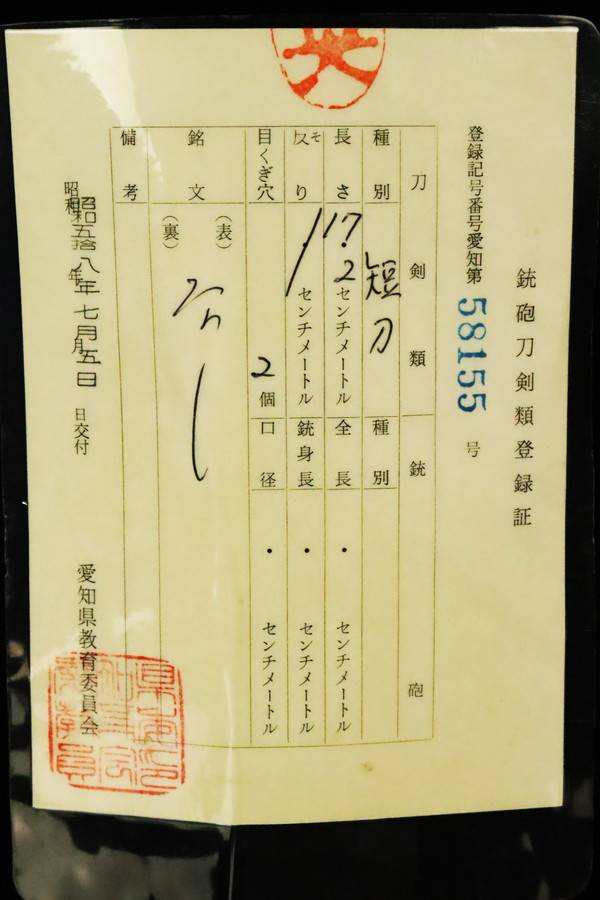 銃砲刀剣類登録証
登録記号番号愛知第58155号
刀剣類
銃砲
種別 短刀
種別
長さ 17.2センチメートル
全長 ・ センチメートル
反り そ センチメートル
銃身長 ・ センチメートル
目くぎ穴 2個
口径 ・ センチメートル
銘文 (表) (裏) なし
備考
昭和 年 月 日交付
昭和五拾八年七月五日
愛知県教育委員会